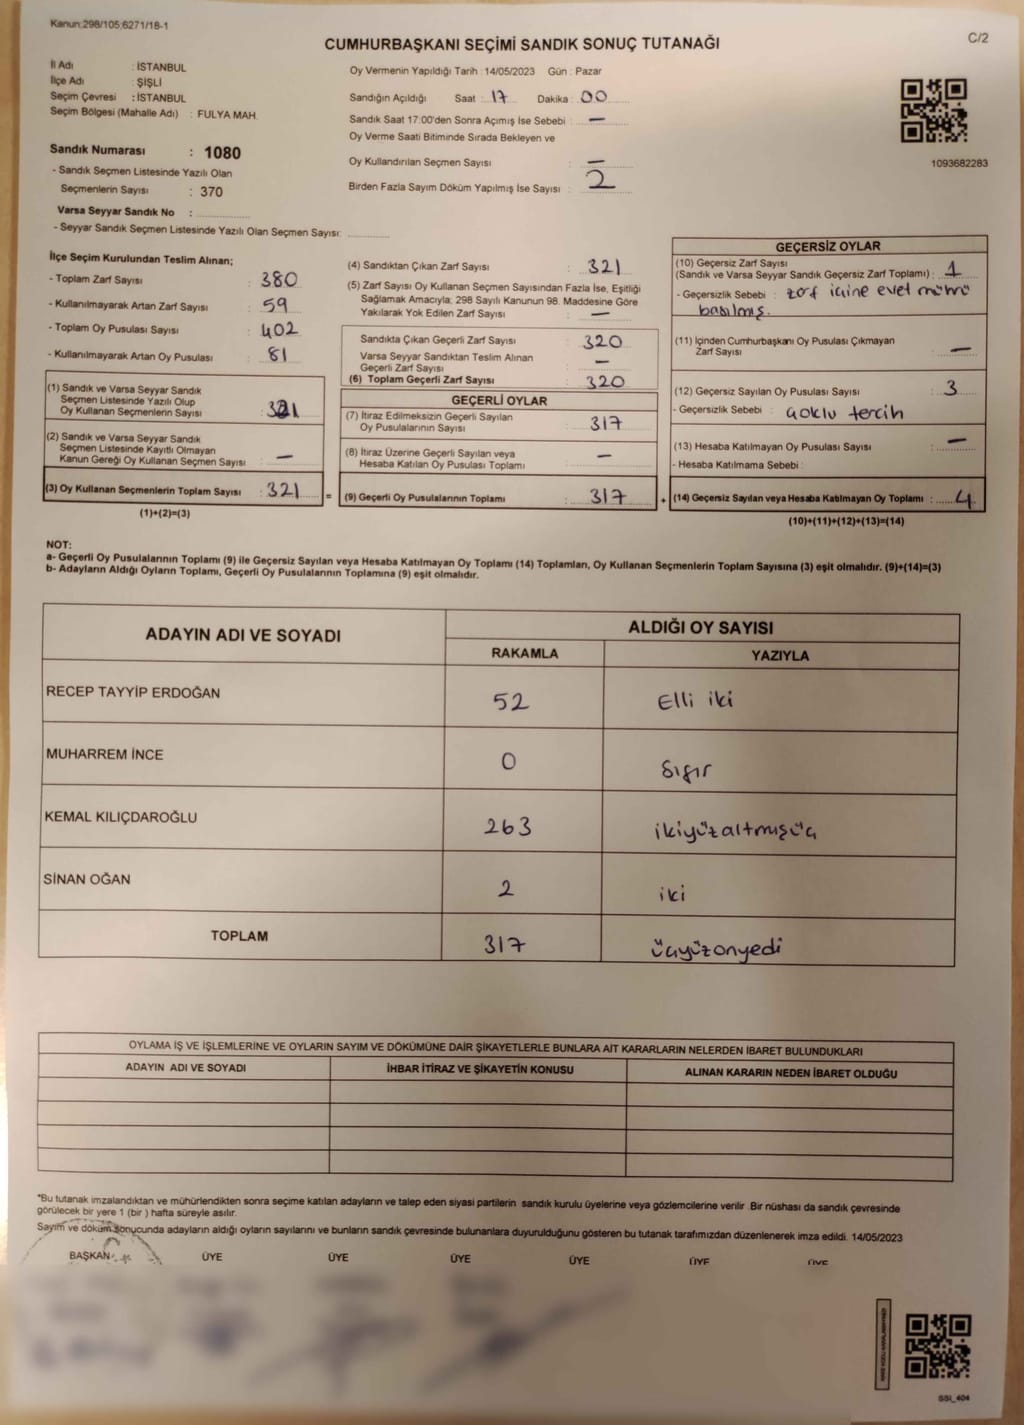 Kanun:298/105,6271/18-1
C/2
CUMHURBAŞKANI SEÇİMİ SANDIK SONUÇ TUTANAĞI
İl Adı : İSTANBUL
İlçe Adı : ŞİŞLİ
Seçim Çevresi : İSTANBUL
Seçim Bölgesi (Mahalle Adı) : FULYA MAH.
Sandık Numarası : 1080
- Sandık Seçmen Listesinde Yazılı Olan
Seçmenlerin Sayısı : 370
Varsa Seyyar Sandık No :
- Seyyar Sandık Seçmen Listesinde Yazılı Olan Seçmen Sayısı:
Oy Vermenin Yapıldığı Tarih : 14/05/2023 Gün : Pazar
Sandığın Açıldığı Saat : 17 Dakika : 00
Sandık Saat 17:00'den Sonra Açımış İse Sebebi : —
Oy Verme Saati Bitiminde Sırada Bekleyen ve
Oy Kullandırılan Seçmen Sayısı : —
Birden Fazla Sayım Döküm Yapılmış İse Sayısı : 2
1093682283
İlçe Seçim Kurulundan Teslim Alınan;
- Toplam Zarf Sayısı : 380
- Kullanılmayarak Artan Zarf Sayısı : 59
- Toplam Oy Pusulası Sayısı : 402
- Kullanılmayarak Artan Oy Pusulası : 81
(1) Sandık ve Varsa Seyyar Sandık
Seçmen Listesinde Yazılı Olup
Oy Kullanan Seçmenlerin Sayısı : 321
(2) Sandık ve Varsa Seyyar Sandık
Seçmen Listesinde Kayıtlı Olmayan
Kanun Gereği Oy Kullanan Seçmen Sayısı : —
(3) Oy Kullanan Seçmenlerin Toplam Sayısı : 321
(1)+(2)=(3)
=
(4) Sandıktan Çıkan Zarf Sayısı : 321
(5) Zarf Sayısı Oy Kullanan Seçmen Sayısından Fazla İse, Eşitliği
Sağlamak Amacıyla, 298 Sayılı Kanunun 98. Maddesine Göre
Yakılarak Yok Edilen Zarf Sayısı : —
Sandıkta Çıkan Geçerli Zarf Sayısı : 320
Varsa Seyyar Sandıktan Teslim Alınan
Geçerli Zarf Sayısı : —
(6) Toplam Geçerli Zarf Sayısı : 320
GEÇERLİ OYLAR
(7) İtiraz Edilmeksizin Geçerli Sayılan
Oy Pusulalarının Sayısı : 317
(8) İtiraz Üzerine Geçerli Sayılan veya
Hesaba Katılan Oy Pusulası Toplamı : —
(9) Geçerli Oy Pusulalarının Toplamı : 317
+
GEÇERSİZ OYLAR
(10) Geçersiz Zarf Sayısı
(Sandık ve Varsa Seyyar Sandık Geçersiz Zarf Toplamı) : 1
- Geçersizlik Sebebi : zarf içine evet mührü
basılmış.
(11) İçinden Cumhurbaşkanı Oy Pusulası Çıkmayan
Zarf Sayısı : —
(12) Geçersiz Sayılan Oy Pusulası Sayısı : 3
- Geçersizlik Sebebi : çoklu tercih
(13) Hesaba Katılmayan Oy Pusulası Sayısı : —
- Hesaba Katılmama Sebebi :
(14) Geçersiz Sayılan veya Hesaba Katılmayan Oy Toplamı : 4
(10)+(11)+(12)+(13)=(14)
NOT:
a- Geçerli Oy Pusulalarının Toplamı (9) ile Geçersiz Sayılan veya Hesaba Katılmayan Oy Toplamı (14) Toplamları, Oy Kullanan Seçmenlerin Toplam Sayısına (3) eşit olmalıdır. (9)+(14)=(3)
b- Adayların Aldığı Oyların Toplamı, Geçerli Oy Pusulalarının Toplamına (9) eşit olmalıdır.
ADAYIN ADI VE SOYADI
ALDIĞI OY SAYISI
RAKAMLA YAZIYLA
RECEP TAYYİP ERDOĞAN 52 Elli iki
MUHARREM İNCE 0 Sıfır
KEMAL KILIÇDAROĞLU 263 ikiyüzaltmışüç
SİNAN OĞAN 2 iki
TOPLAM 317 üçyüzonyedi
OYLAMA İŞ VE İŞLEMLERİNE VE OYLARIN SAYIM VE DÖKÜMÜNE DAİR ŞİKAYETLERLE BUNLARA AİT KARARLARIN NELERDEN İBARET BULUNDUKLARI
ADAYIN ADI VE SOYADI İHBAR İTİRAZ VE ŞİKAYETİN KONUSU ALINAN KARARIN NEDEN İBARET OLDUĞU
*Bu tutanak imzalandıktan ve mühürlendikten sonra seçime katılan adayların ve talep eden siyasi partilerin sandık kurulu üyelerine veya gözlemcilerine verilir. Bir nüshası da sandık çevresinde
görülecek bir yere 1 (bir ) hafta süreyle asılır.
Sayım ve döküm sonucunda adayların aldığı oyların sayılarını ve bunların sandık çevresinde bulunanlara duyurulduğunu gösteren bu tutanak tarafımızdan düzenlenerek imza edildi. 14/05/2023
BAŞKAN ÜYE ÜYE ÜYE ÜYE ÜYE ÜYE
SSI_404